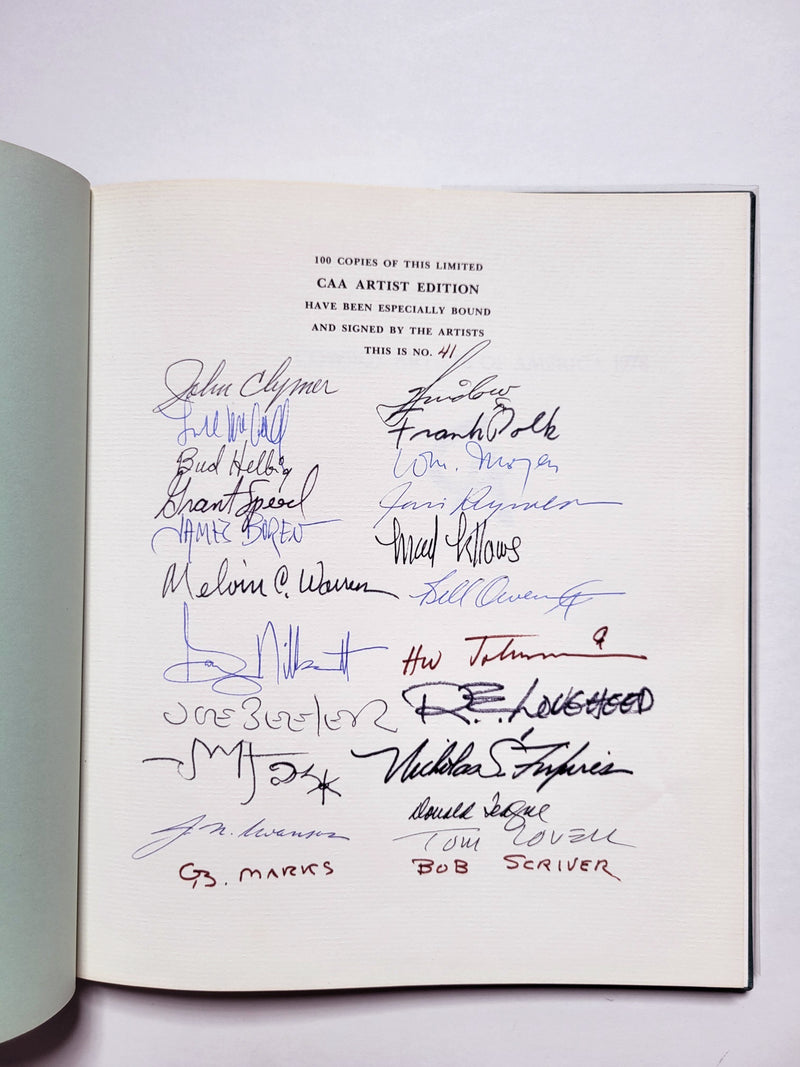 100 COPIES OF THIS LIMITED
CAA ARTIST EDITION
HAVE BEEN ESPECIALLY BOUND
AND SIGNED BY THE ARTISTS
THIS IS NO. 41
John Clymer
Bud Helbig
Grant Speed
JAMES BOREN
Melvin C. Warren
JOE BEELER
J. N. Swanson
G.B. MARKS
Frank Polk
Wm. Moyers
Bill Owen
HW
R.E. LOUGHEED
Nicholas S. Firfires
Donald Teague
TOM LOVELL
BOB SCRIVER